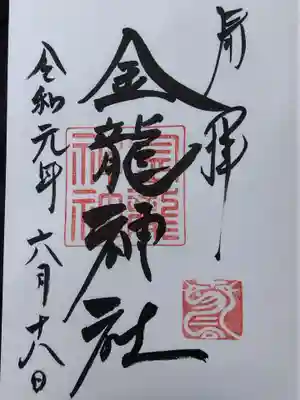 奉拝
金龍神社
令和元年六月十八日